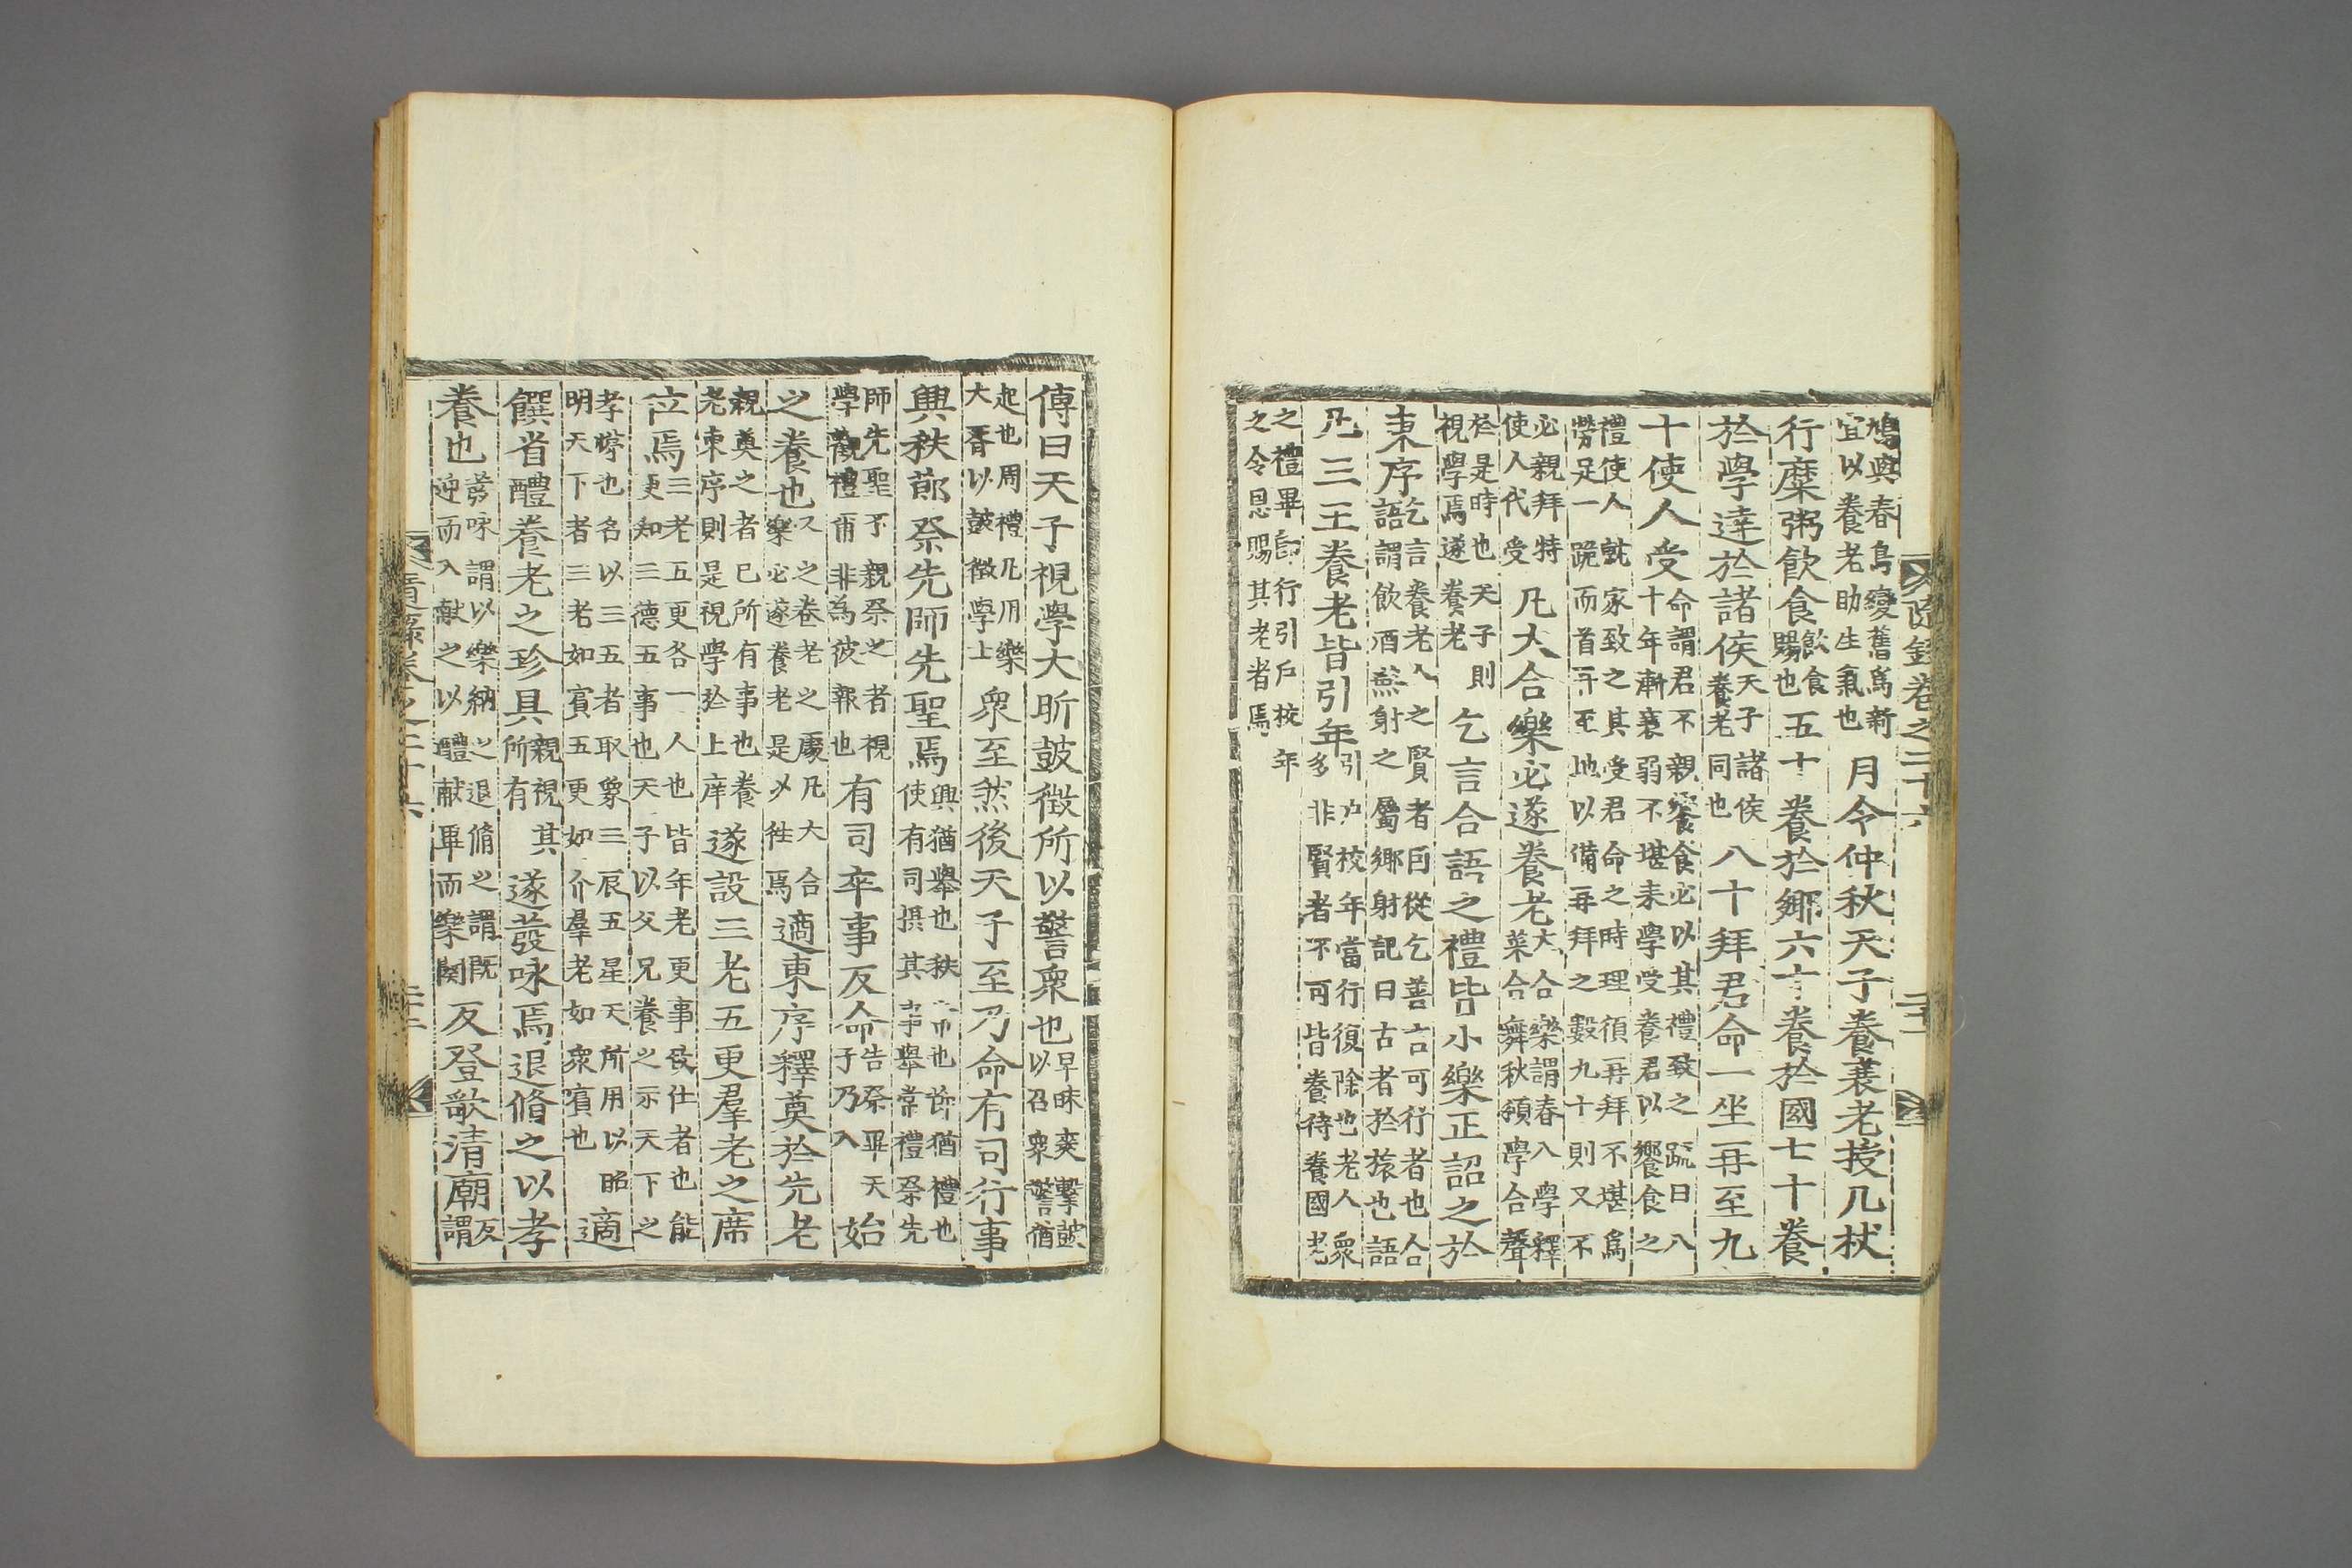 隨錄卷之二十六 二十一
鳩與春鳥變舊爲新
宜以養老助生氣也
月令仲秋天子養衰老授几杖
行糜粥飲食
飲食
賜也
五十養於鄉六十養於國七十養
於學達於諸侯
天子諸侯
養老同也
八十拜君命一坐再至九
十使人受
命謂君不親饗食必以其禮致之䟽曰八
十年漸衰弱不堪来學受養君以饗食之
禮使人就家致之其受君命之時理須再拜不堪爲
勞足一跪而首再至地以備再拜之數九十則又不
必親拜特
使人代受
凡大合樂必遂養老
大合樂謂春入學釋
菜合舞秋頒學合聲
於是時也天子則
視學焉遂養老
乞言合語之禮皆小樂正詔之於
東序
乞言養老人之賢者因從乞善言可行者也合
語謂飲酒燕射之屬鄉射記曰古者於旅也語
凡三王養老皆引年
引户校年當行復除也老人衆
多非賢者不可皆養待養國老
之禮畢卽行引戶校年
之令恩賜其老者焉
傳曰天子視學大昕鼓徵所以警衆也
早昧爽擊鼓
以召衆警猶
起也周禮凡用樂
大胥以鼓徵學士
衆至然後天子至乃命有司行事
興秩節祭先師先聖焉
興猶舉也秩常也節猶禮也
使有司摄其事舉常禮祭先
師先聖不親祭之者視
學觀禮爾非為彼報也
有司卒事反命
告祭畢天
子乃入
始
之養也
又之養老之處凡大合
樂必遂養老是以徃焉
適東序釋奠於先老
親奠之者已所有事也養
老東序則是視學於上庠
遂設三老五更羣老之席
位焉
三老五更各一人也皆年老更事致仕者也能
更知三德五事也天子以父兄養之示天下之
孝悌也名以三五者取象三辰五星天所用以昭
明天下者三老如賓五更如介羣老如衆賓也
適
饌省醴養老之珍具
親視其
所有
遂發咏焉退脩之以孝
養也
發咏謂以樂納之退脩之謂既
迎而入献之以醴献畢而樂闋
反登歌清廟
反
謂
隨錄卷之二十六 二十二